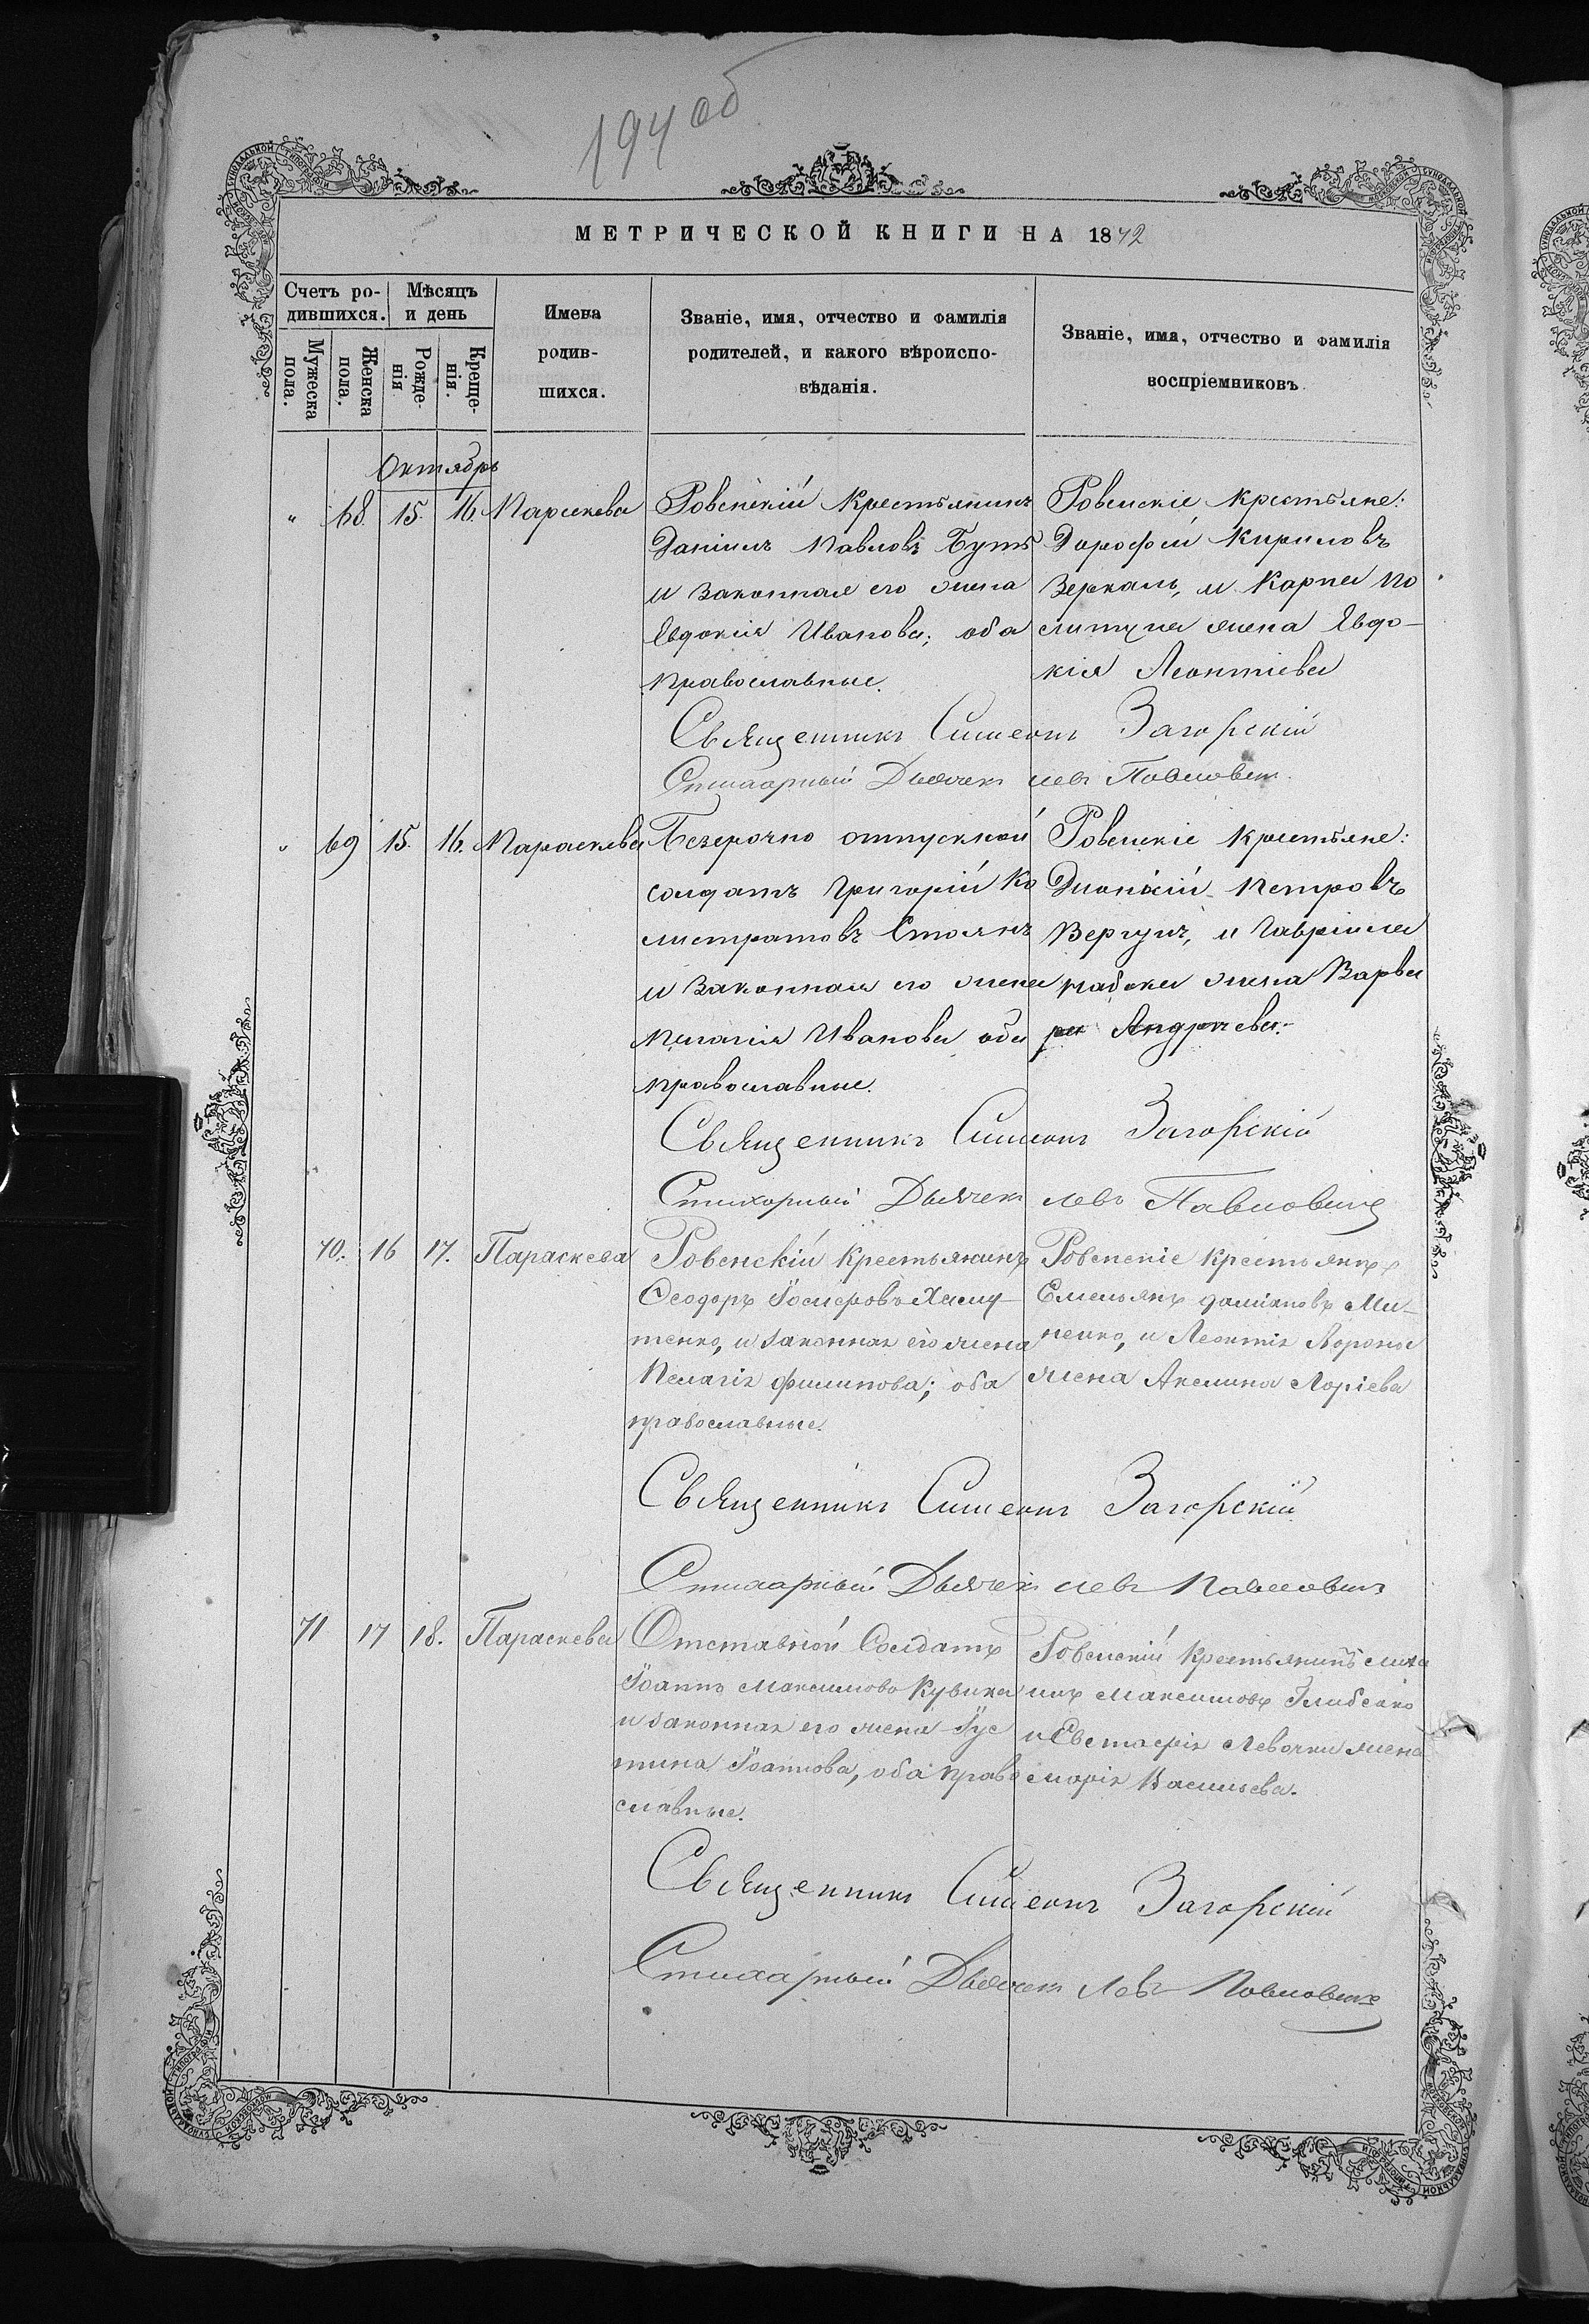 194 об
МЕТРИЧЕСКОЙ КНИГИ НА 1872
Счетъ ро-
дившихся.
Мѣсяцъ
и день
Имена
родив-
шихся.
Званіе, имя, отчество и фамилія
родителей, и какого вѣроиспо-
вѣданія.
Званіе, имя, отчество и фамилія
воспріемниковъ
Мужеска
пола.
Женска
пола.
Рожде-
нія
Креще-
нія.
Октябрь
" 68. 15. 16. Параскева
Ровенскій Крестьянинъ
Даніилъ Павловъ Бутъ
и законная его жена
Евдокія Иванова; оба
православные.
Ровенскіе крестьяне:
Дорофей Кириловъ
Зеркаль, и Карпа По
жена Евдо-
кія Леонтіева
Священникъ Симеонъ Загорскій
Стихарный Дьячекъ Левъ Павловичъ
" 69 15. 16. Параскева
Безсрочно отпускной
солдатъ Григорій Ка
листратовъ Стоянъ
и законная его жена
Пелагія Иванова оба
православные.
Ровенскіе крестьяне:
Діонисій Петровъ
Вергунъ, и Гавріила
жена Варва
ра Андреева.
Священникъ Симеонъ Загорскій
Стихарный Дьячекъ Левъ Павловичъ
70. 16 17. Параскева
Ровенскій Крестьянинъ
Ѳеодоръ
тенко, и законная его жена
Пелагія Филипова; оба
православные.
Ровенскіе крестьяне
Емельянъ Даміановъ Ми-
ненко, и Леонтія
жена Акелина
Священникъ Симеонъ Загорскій
Стихарный Дьячекъ Левъ Павловичъ
71 17 18. Параскева
Отставной Солдатъ
Іоаннъ Максимовъ
и законная его жена Іус
тина Іоаннова, оба право
славные.
Ровенскій Крестьянинъ Миха
илъ Максимовъ
и Евстафія Левочки жена
Марія Васильева.
Священникъ Симеонъ Загорскій
Стихарный Дьячекъ Левъ Павловичъ